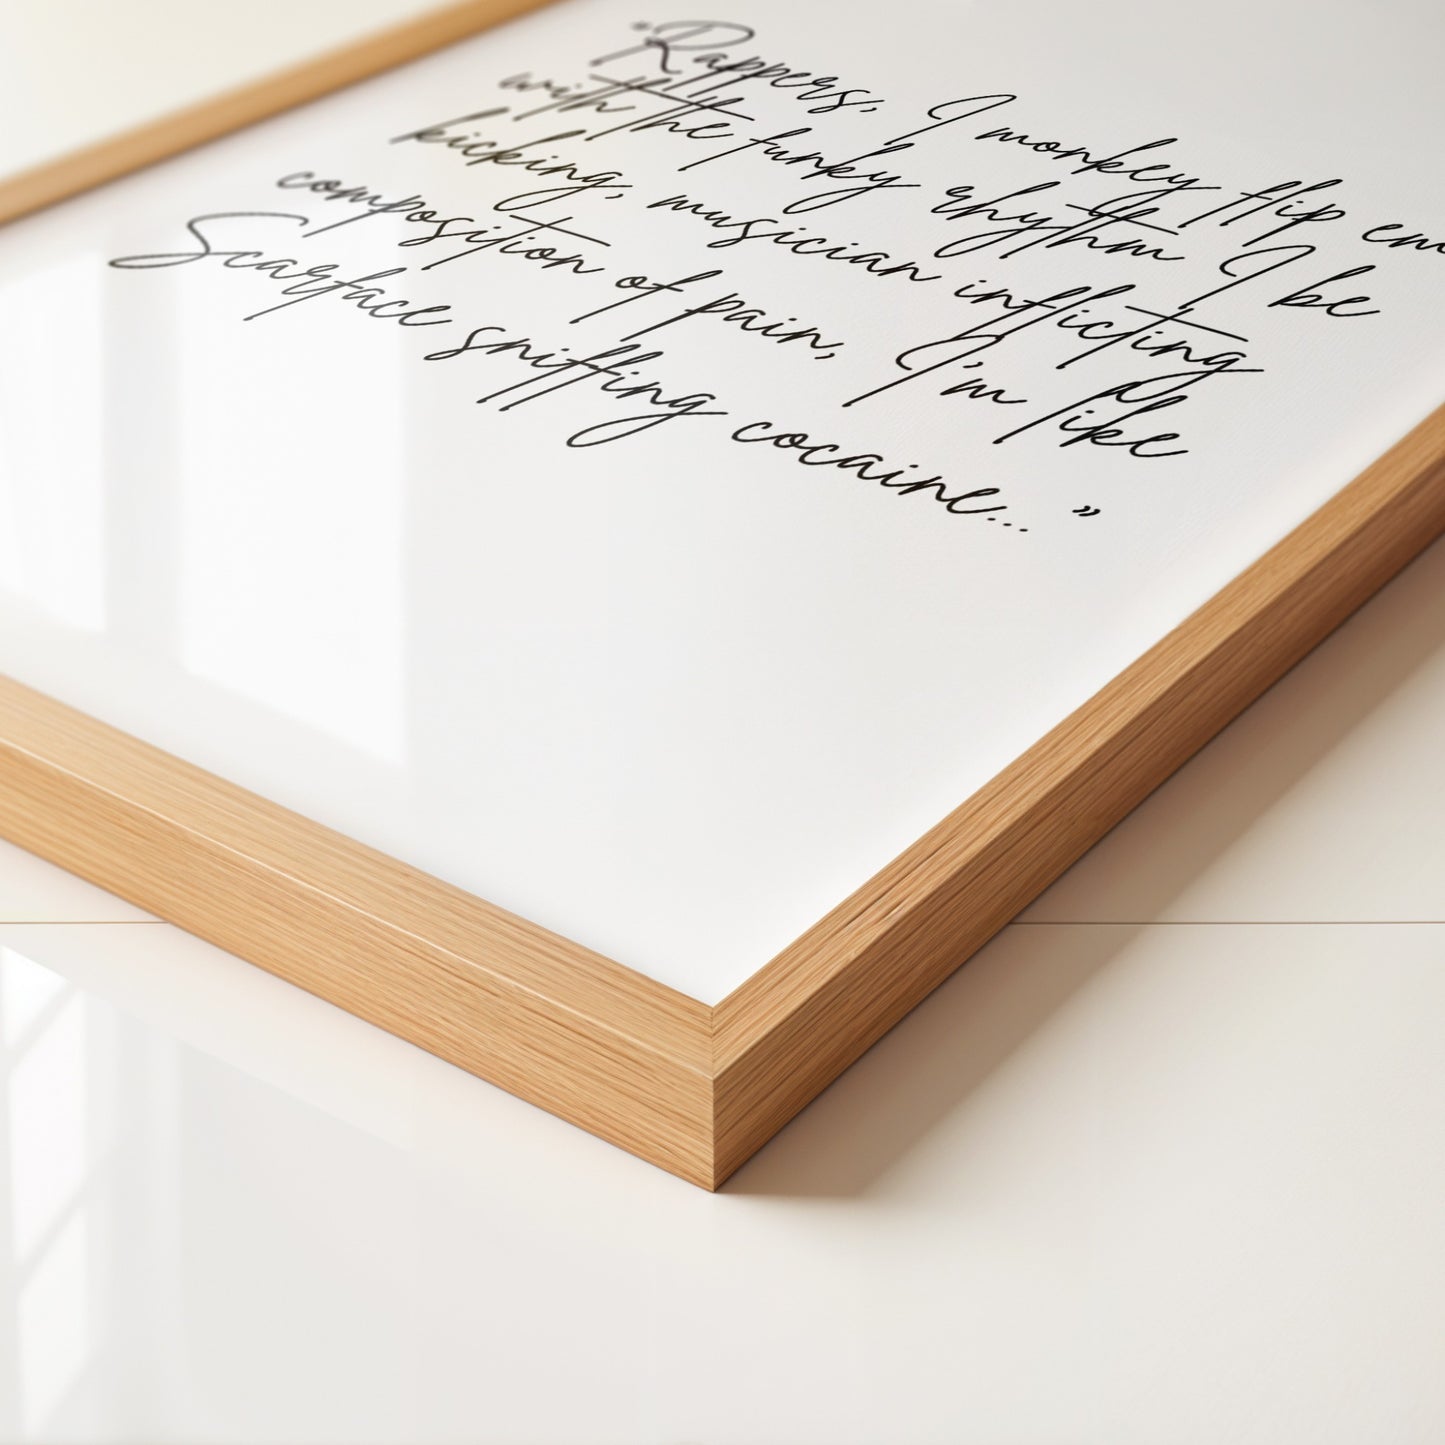 “Rappers, I monkey flip em
with the funky rhythm I be
kicking, musician inflicting
composition of pain, I’m like
Scarface sniffing cocaine... ”